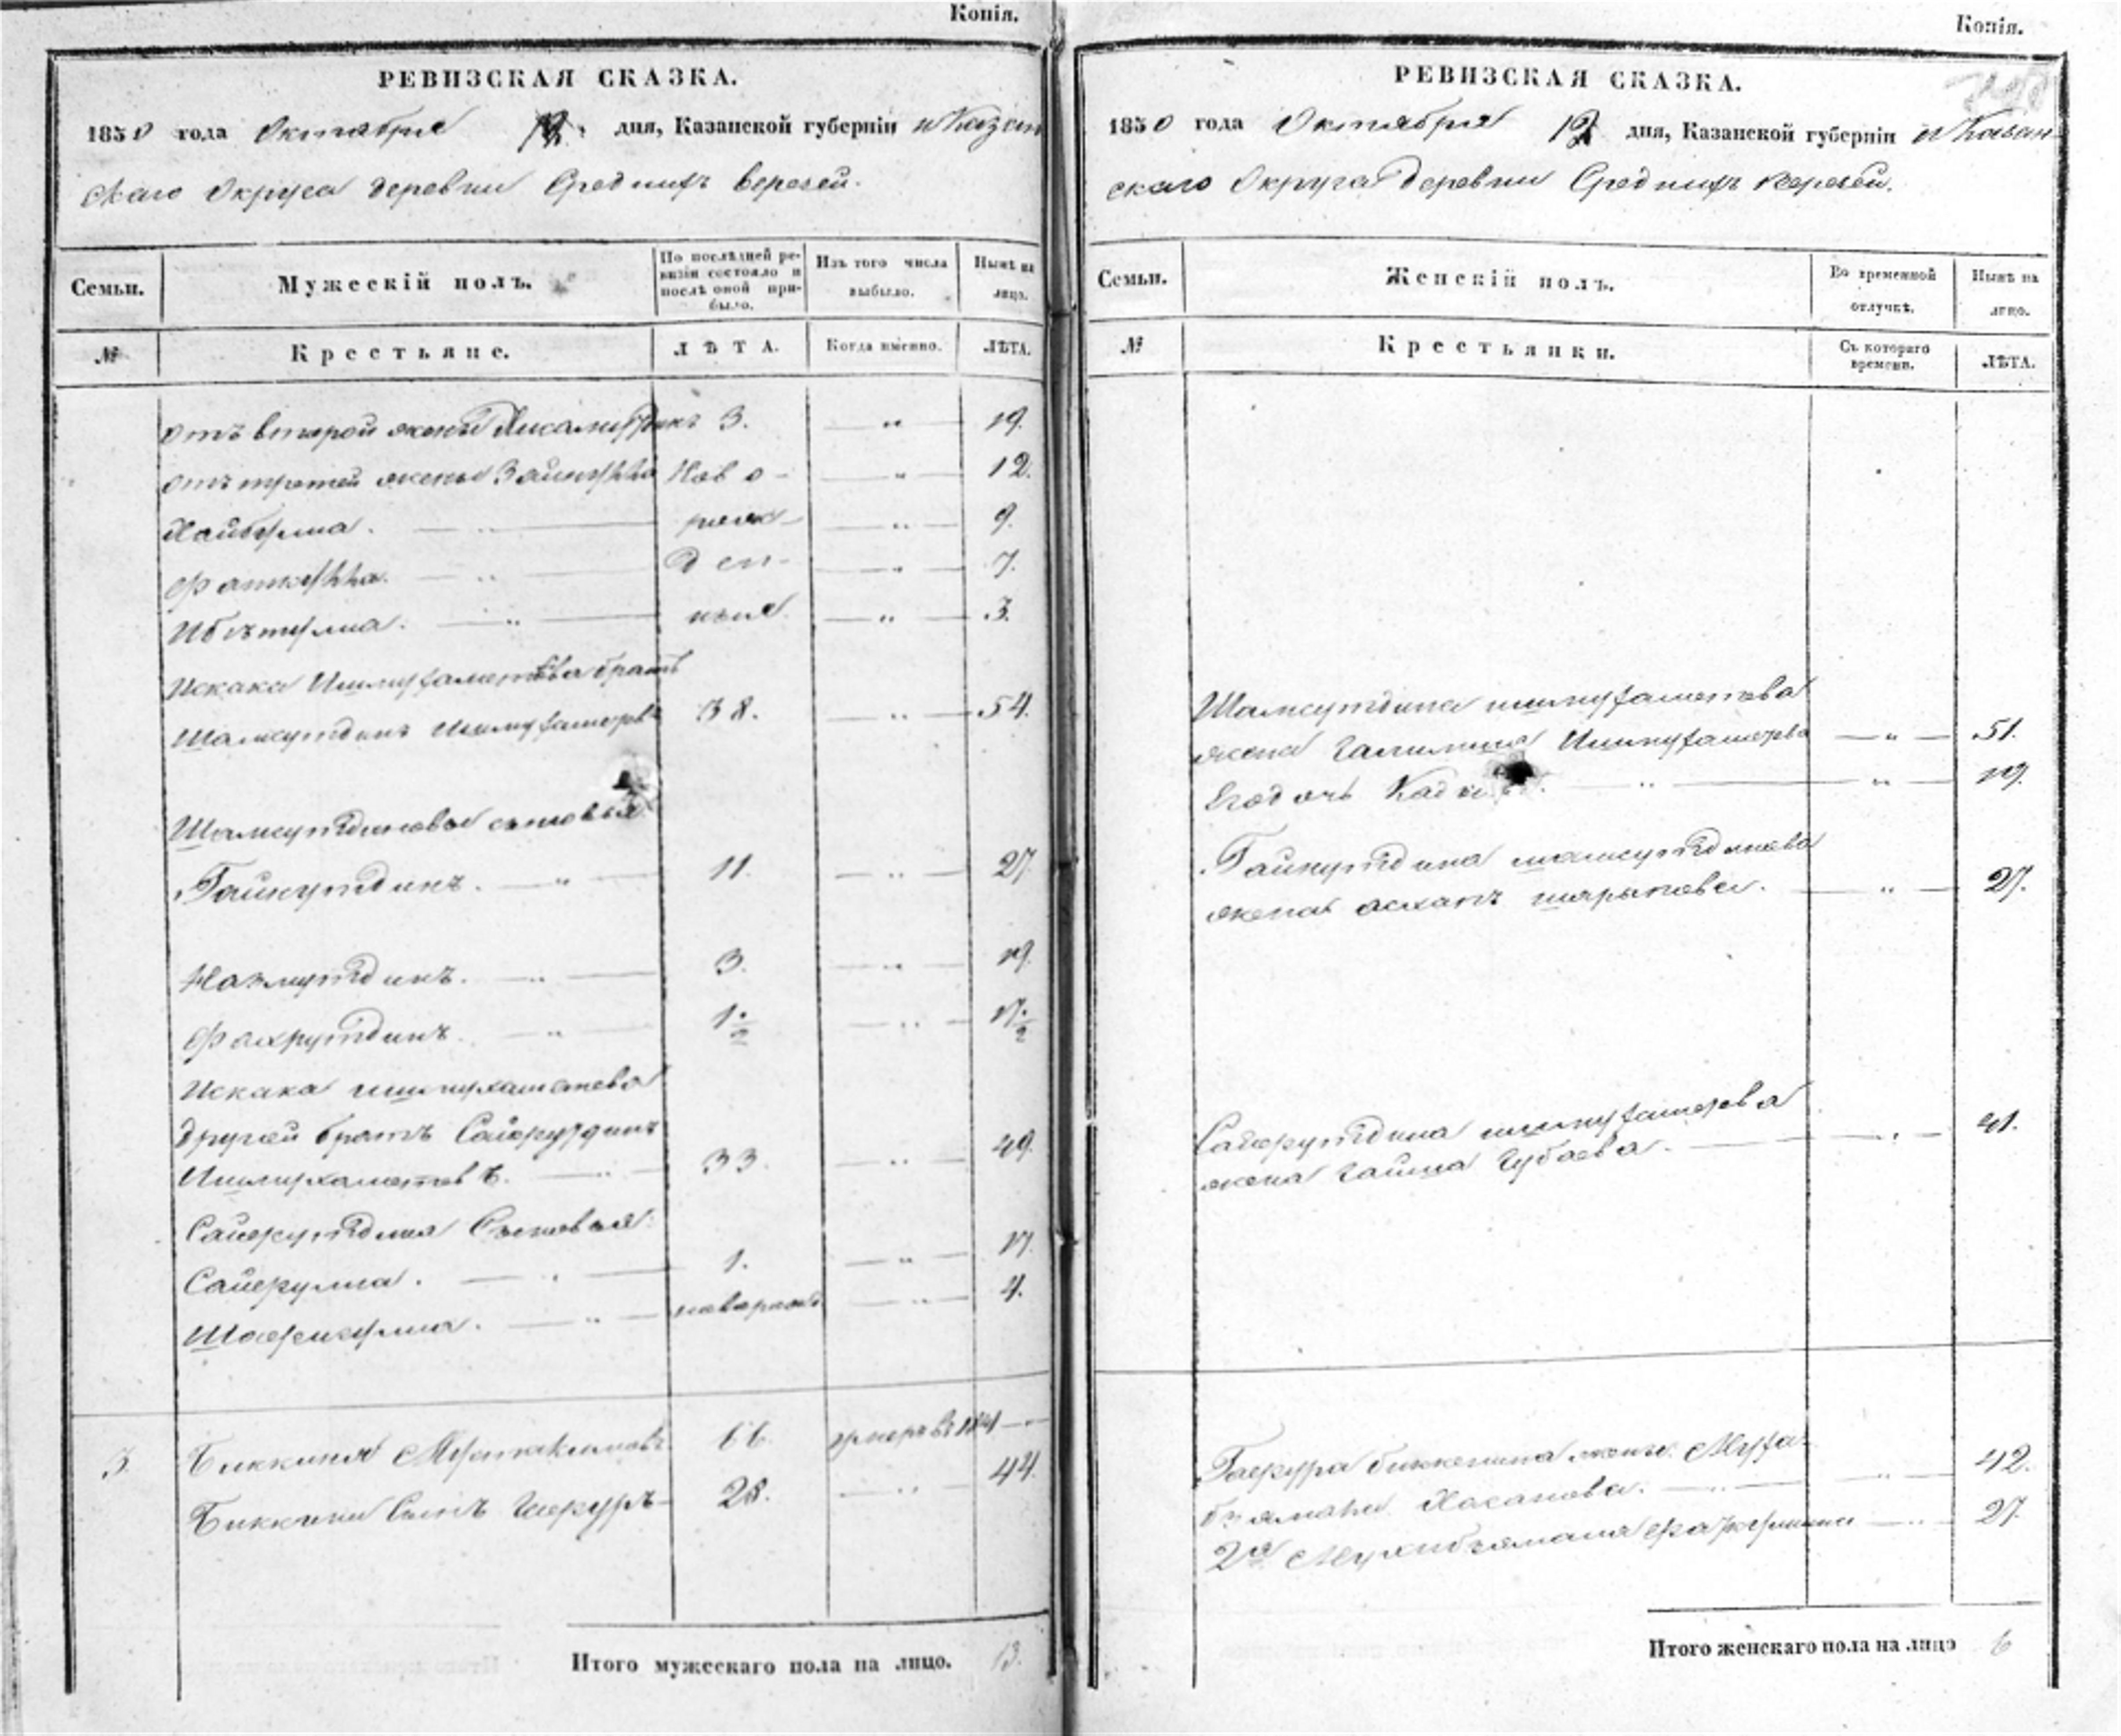 Копія.
РЕВИЗСКАЯ СКАЗКА.
1850 года Октября 12 дня, Казанской губерніи и Казан
скаго Округа деревни Среднихъ Верезей.
Семьи.
Мужескій полъ.
По послѣдней ре-
визіи состояло и
послѣ оной при-
было.
Изъ того числа
выбыло.
Нынѣ на
лицо.
№
Крестьяне.
ЛѢТА.
Когда именно.
ЛѢТА.
отъ второй жены 3. — " — 19.
отъ третей жены Зайнулла Ново- — " — 12.
Хайбулла. — " — рож- — " — 9.
Фаткулла. — " — ден- — " — 7.
— " — ныя — " — 3.
Искака Ишмухаметева братъ
Шамсутдинъ Ишмухаметевъ 38. — " — 54.
Шамсутдиновы сыновья
Гайнутдинъ. — " — 11. — " — 27.
Назмутдинъ. — " — 3. — " — 19.
Фахрутдинъ. — " — 1. 1/2 — " — 17. 1/2
Искака ишмухаметева
другой братъ Сайфутдинъ
Ишмухаметевъ. — " — 33. — " — 49.
Сайфутдина Сыновья
Сайфулла. — " — 1. — " — 17.
Шафигулла. — " — новорожд — " — 4.
3. Биккиня 66. умеръ въ 1841 —
Биккини Сынъ Гафуръ — 28. — " — 44.
Итого мужескаго пола на лицо. 13.
Копія.
РЕВИЗСКАЯ СКАЗКА.
1850 года Октября 12 дня, Казанской губерніи и Казан-
скаго Округа деревни Среднихъ Верезей.
Семьи.
Женскій полъ.
Во временной
отлучкѣ.
Нынѣ на
лицо.
№
Крестьянки.
Съ котораго
времени.
ЛѢТА.
Шамсутдина ишмухаметева
жена Ишмухаметева — " — 51.
Его дочь — " — 19.
Гайнутдина шамсутдинова
жена асхапъ шарыпова. — " — 27.
Сайфутдина ишмухаметева
жена Гайша Губаева. — " — 41.
Гафура биккенина жены
Хасанова. — " — 42.
2я — " — 27.
Итого женскаго пола на лицо 6